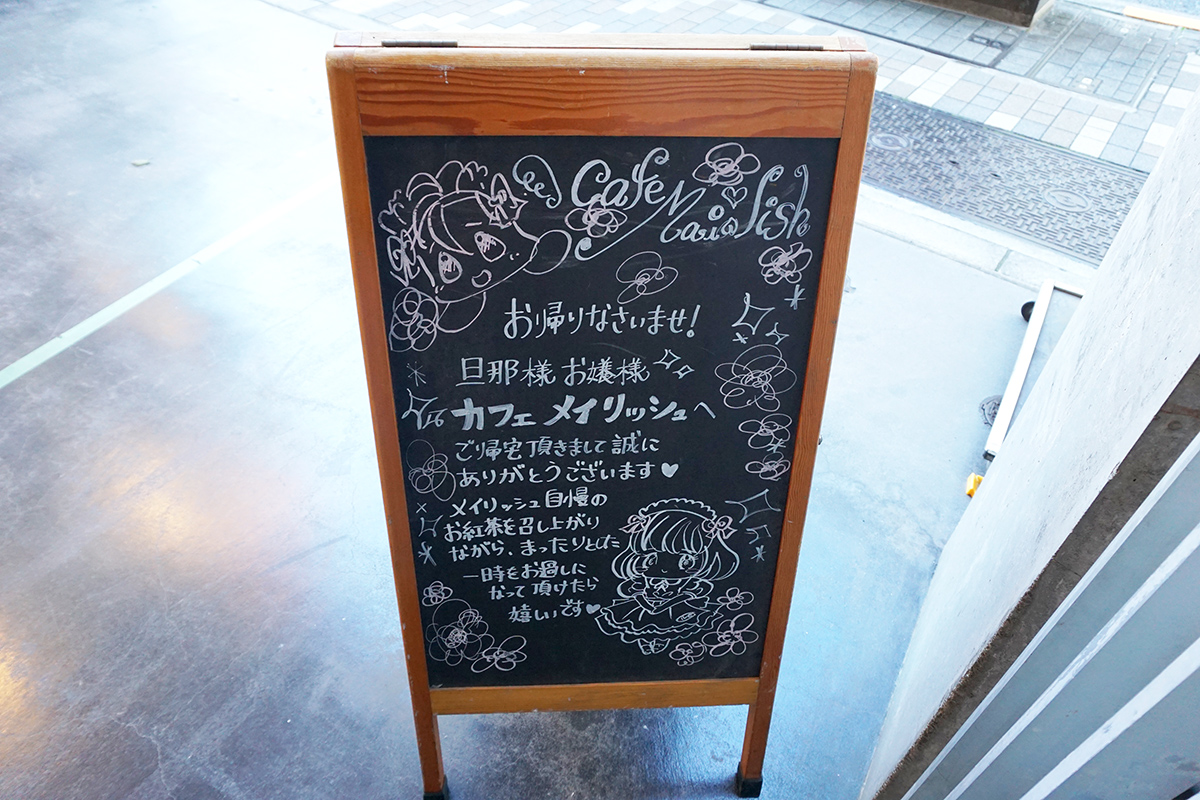 Cafe
Mai♡lish
お帰りなさいませ!
旦那様 お嬢様
カフェ メイリッシュへ
ご帰宅頂きまして誠に
ありがとうございます♥
メイリッシュ自慢の
お紅茶を召し上がり
ながら、まったりとした
一時をお過しに
なって頂けたら
嬉しいです♥